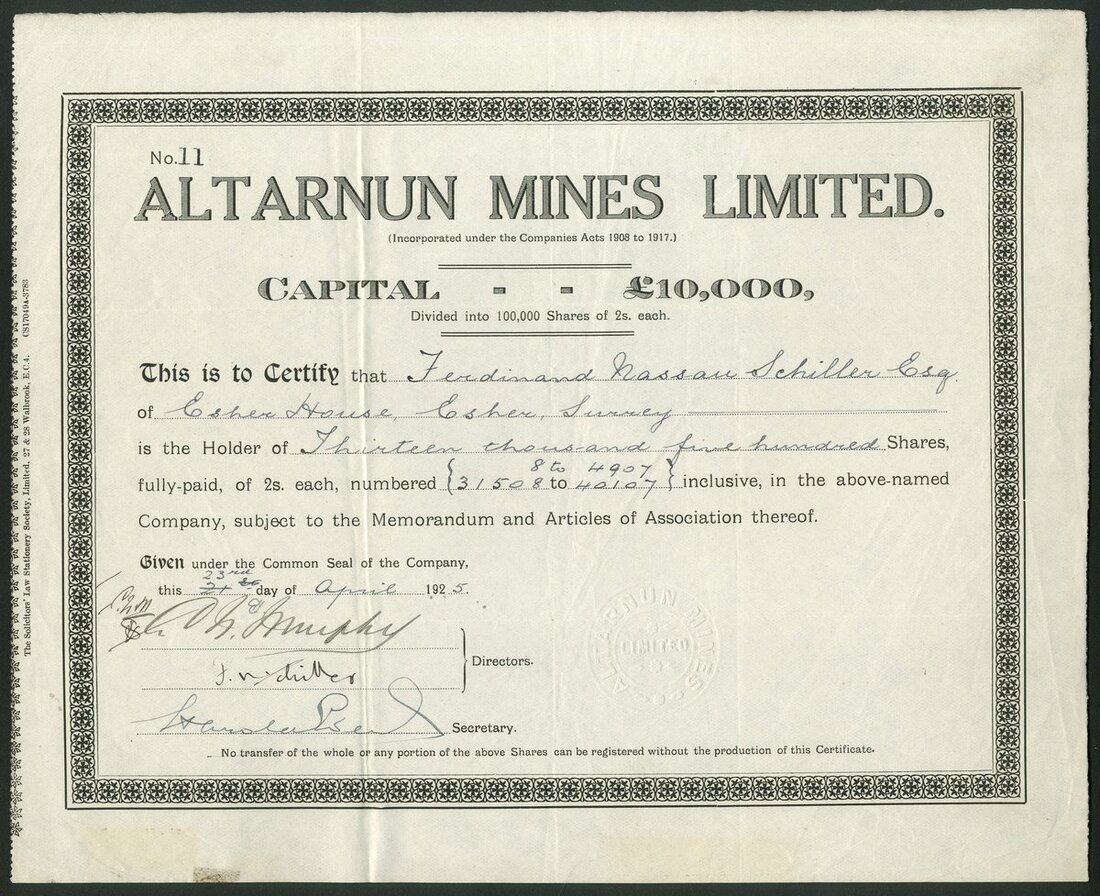 No. 11
ALTARNUN MINES LIMITED.
(Incorporated under the Companies Acts 1908 to 1917.)
CAPITAL - - £10,000,
Divided into 100,000 Shares of 2s. each.
This is to Certify that Ferdinand Nassau Schiller Esq.
of Esher House, Esher, Surrey
is the Holder of Thirteen thousand five hundred Shares,
8 to 4907
fully-paid, of 2s. each, numbered { 31508 to 40107 } inclusive, in the above-named
Company, subject to the Memorandum and Articles of Association thereof.
Given under the Common Seal of the Company,
23rd
this 21 day of April 1925.
Murphy
Directors.
Secretary.
No transfer of the whole or any portion of the above Shares can be registered without the production of this Certificate.
ALTARNUN MINES
LIMITED
The Solicitors' Law Stationery Society, Limited, 27 & 28 Walbrook, E.C.4. CS17049A-3783